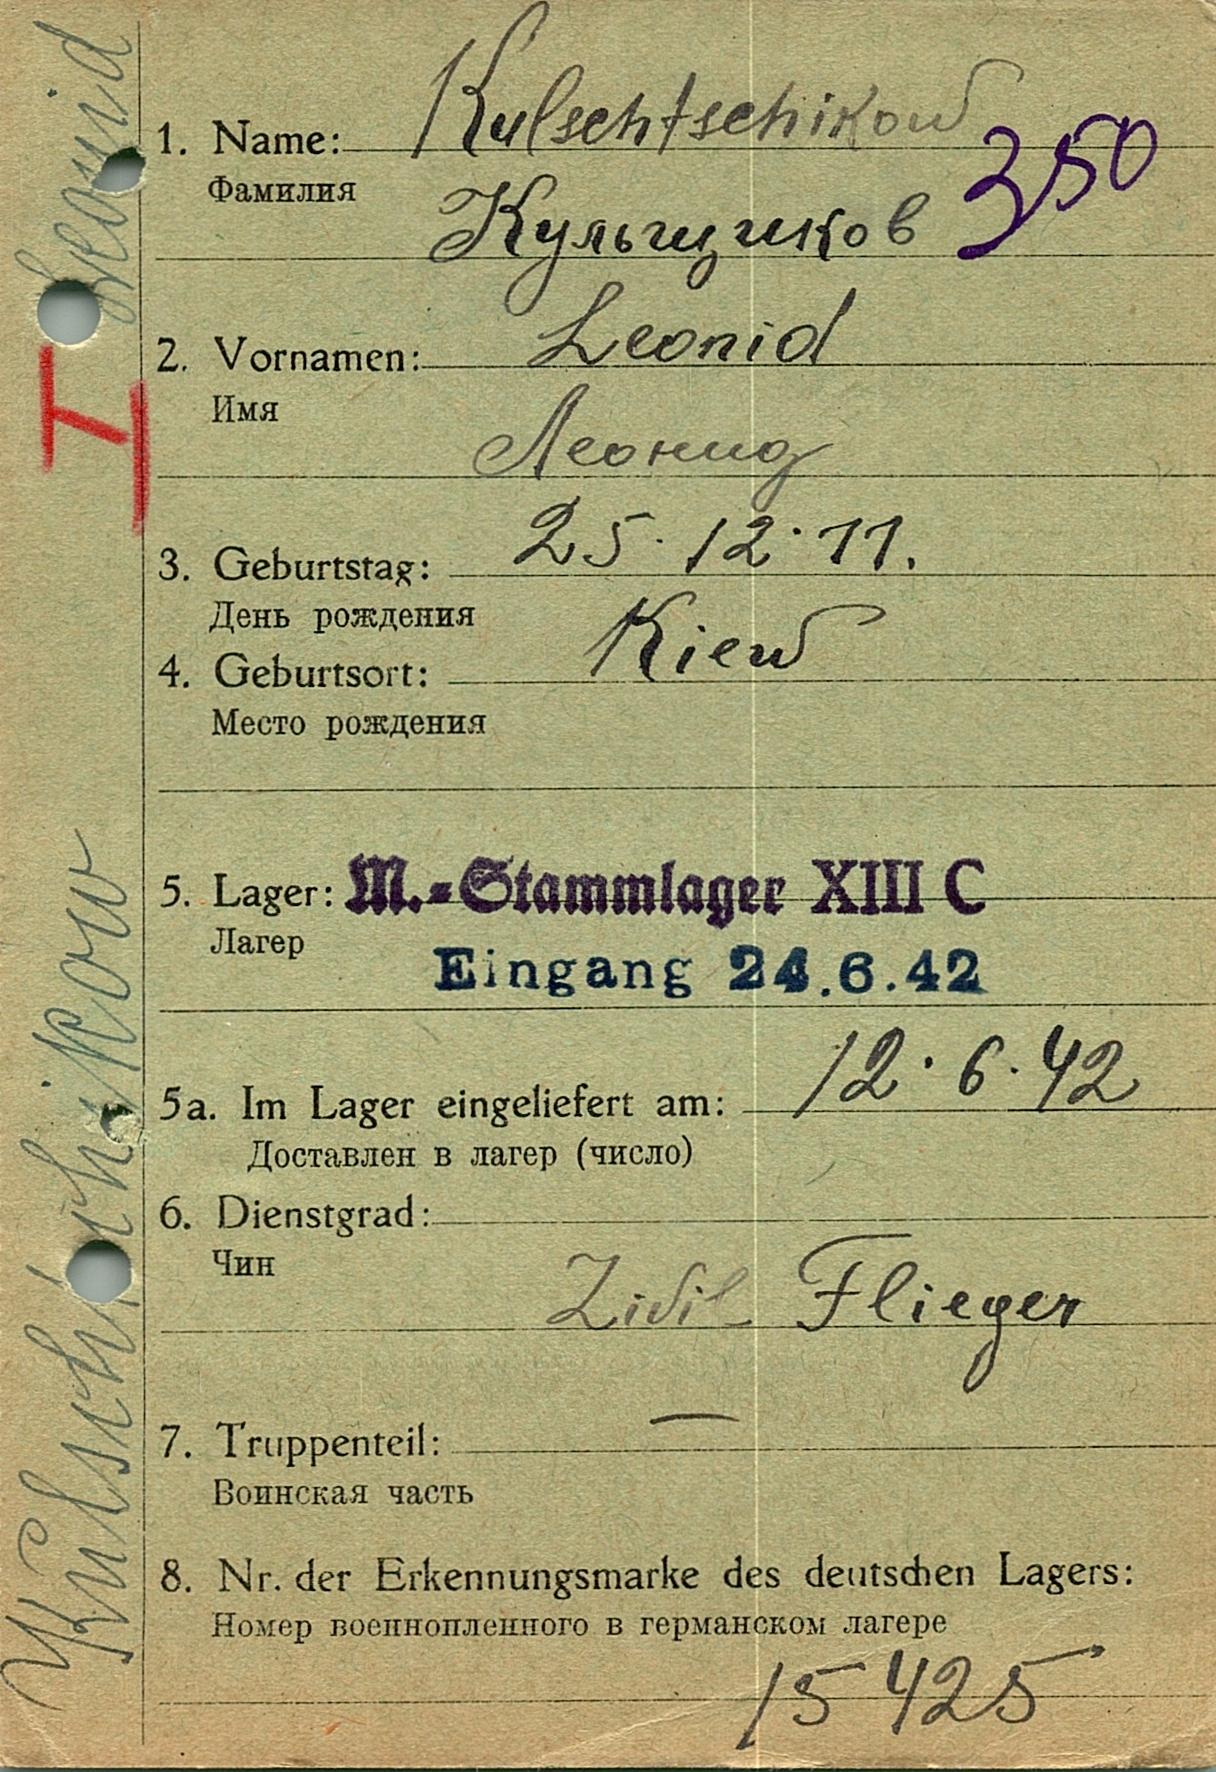 Kulschtschikow Leonid
1. Name: Kulschtschikow
Фамилия
350
Кульщиков
2. Vornamen: Leonid
Имя
Леонид
I
3. Geburtstag: 25.12.11.
День рождения
4. Geburtsort: Kiew
Место рождения
5. Lager: M.-Stammlager XIII C
Лагер
Eingang 24.6.42
5a. Im Lager eingeliefert am: 12.6.42
Доставлен в лагер (число)
6. Dienstgrad:
Чин
Zivil Flieger
7. Truppenteil: —
Воинская часть
8. Nr. der Erkennungsmarke des deutschen Lagers:
Номер военнопленного в германском лагере
15425